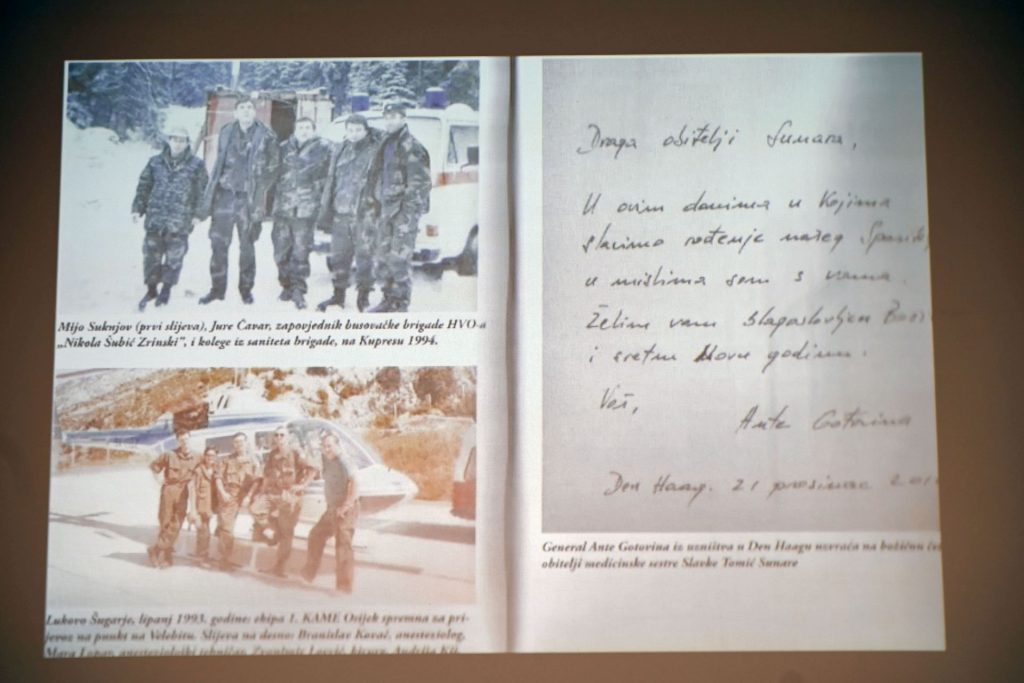 Mijo Suknjov (prvi slijeva), Jure Čavar, zapovjednik busovačke brigade HVO-a
„Nikola Šubić Zrinski", i kolege iz saniteta brigade, na Kupresu 1994.
Lukovo Šugarje, lipanj 1993. godine: ekipa 1. KAME Osijek spremna za pri-
jevoz na punkt na Velebitu. Slijeva na desno: Branislav Kovač, anesteziolog,
Mara Lopar, anesteziološki tehničar, Zvonimir kirurg, Andrija
Draga obitelji Sunara,
U ovim danima u kojima
slavimo rođenje našeg
u mislima sam s vama.
Želim vam blagoslovljen
i sretnu Novu godinu.
Vaš,
Ante Gotovina
Den Haag. 21 prosinac
General Ante Gotovina iz uzništva u Den Haagu uzvraća na božićnu
obitelji medicinske sestre Slavke Tomić Sunare